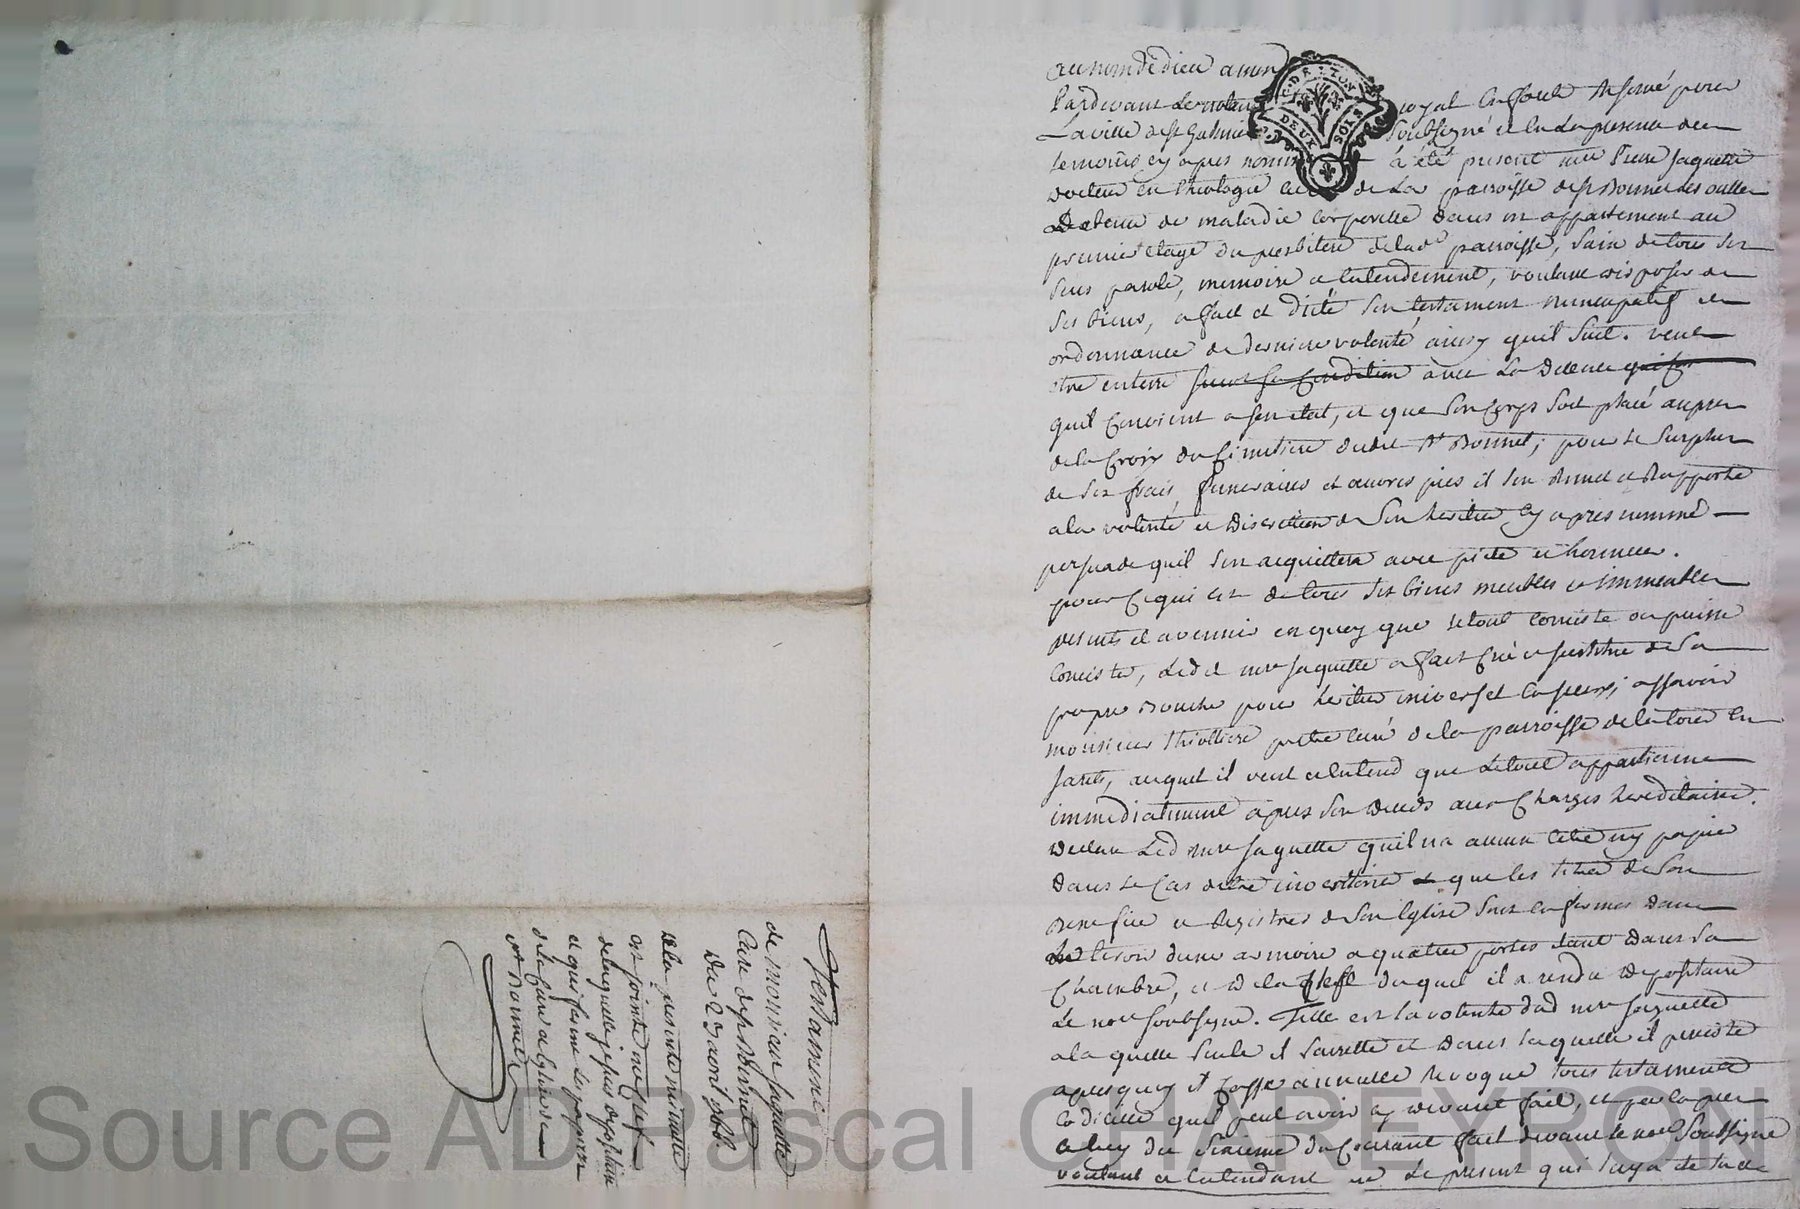 au nom de dieu amen
Pardevant le notaire royal en forest reservé pour
La ville de st Galmier soubsigné et en la presence des
temoins cy apres nommés a été present mre Pierre Jaquette
docteur en theologie curé de la parroisse de st Bonnet les oulles
Detenu de maladie corporelle dans un appartement au
premier etage du presbitere de lad parroisse, sain de tous ses
sens parole, memoire et entendement, voulant disposer de
ses biens, a fait et dicté son testament nuncupatif et
ordonnance de derniere volonté ainsy quil suit. veut
etre enterré suivant sa condition avec la decence
quil convient a son etat, et que son corps soit placé aupres
de la croix du cimetiere dudit st Bonnet; pour le surplus
de ses frais funeraires et œuvres pies il sen remet et rapporte
a la volonté et discretion de son heritier cy apres nommé
persuadé quil sen acquittera avec pieté et honneur.
pour ce qui est de tous ses biens meubles et immeubles
presents et avenir en quoy que le tout consiste ou puisse
consister, ledit mre Jaquette a fait créé et institué de sa
propre bouche pour heritier universel assavoir
monsieur thiolliere pretre curé de la parroisse de la tour en
Jarets, auquel il veut et entend que le tout appartienne
immediatement apres son deces aux charges hereditaires.
Declare Led mre Jaquette quil na aucun titre ny papier
dans le cas detre inventorié et que les titres de son
Benefice et Registres de son Eglise sont enfermés dans
un tiroir dune armoire a quatre portes etant dans sa
Chambre, et de la clef duquel il a rendu depositaire
Le nore soubsigné. Telle est la volonté dud mre Jaquette
a la quelle seule il sarrette et dans laquelle il persiste
apres quoy il casse annulle revoque tous testaments
Codicille quil peut avoir cy devant fait, et
du courant fait devant le nore soussigné
voulant et entendant que le present qui luy a eté lu
Testament
de monsieur Jaquette
Curé de st Bonnet
Du 23 avril
a la presente minutte
est jointe une clef
de laquelle je suis depositaire
et qui ferme les papiers
de la cure et eglise de
st Bonnet
Source AD Pascal CHAREYRON